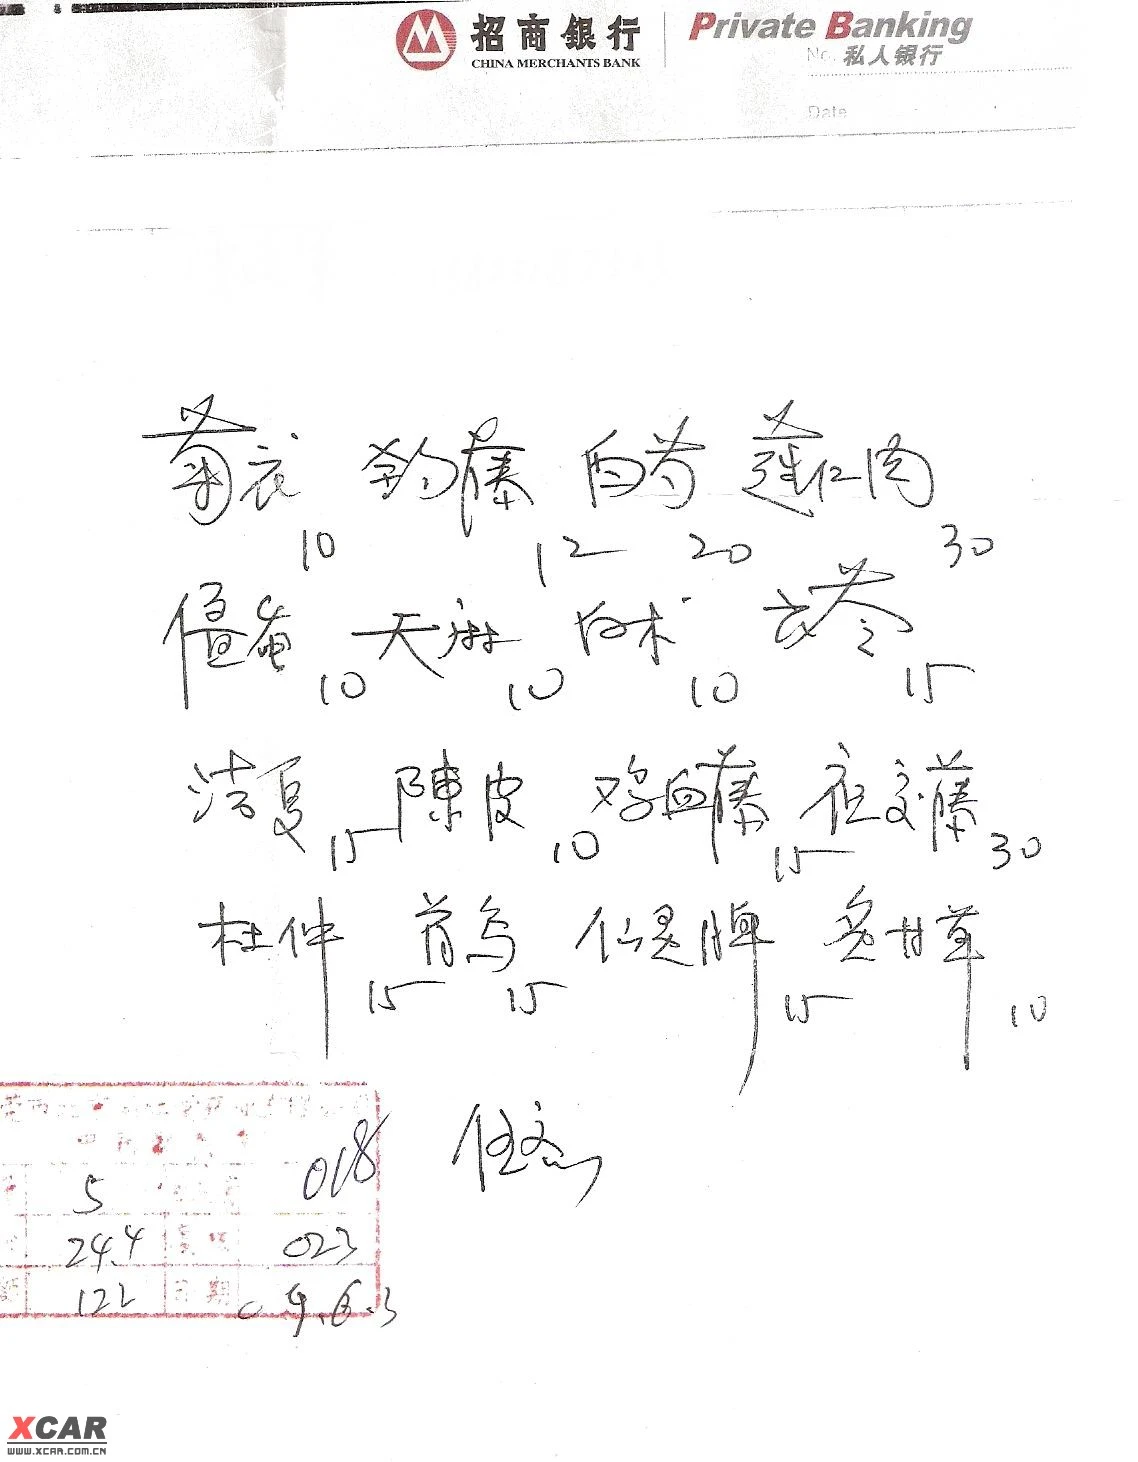 招商银行 Private Banking
CHINA MERCHANTS BANK No. 私人银行
Date
菊衣 钩藤 白芍 莲仁肉
10 12 20 30
僵蚕 天麻 白术 茯苓
10 10 10 15
法夏 陳皮 鸡血藤 夜交藤
15 10 15 30
杜仲 首乌 仙灵脾 炙甘草
15 15 15 10
5 018
24.4 023
122 09.6.3
XCAR
WWW.XCAR.COM.CN